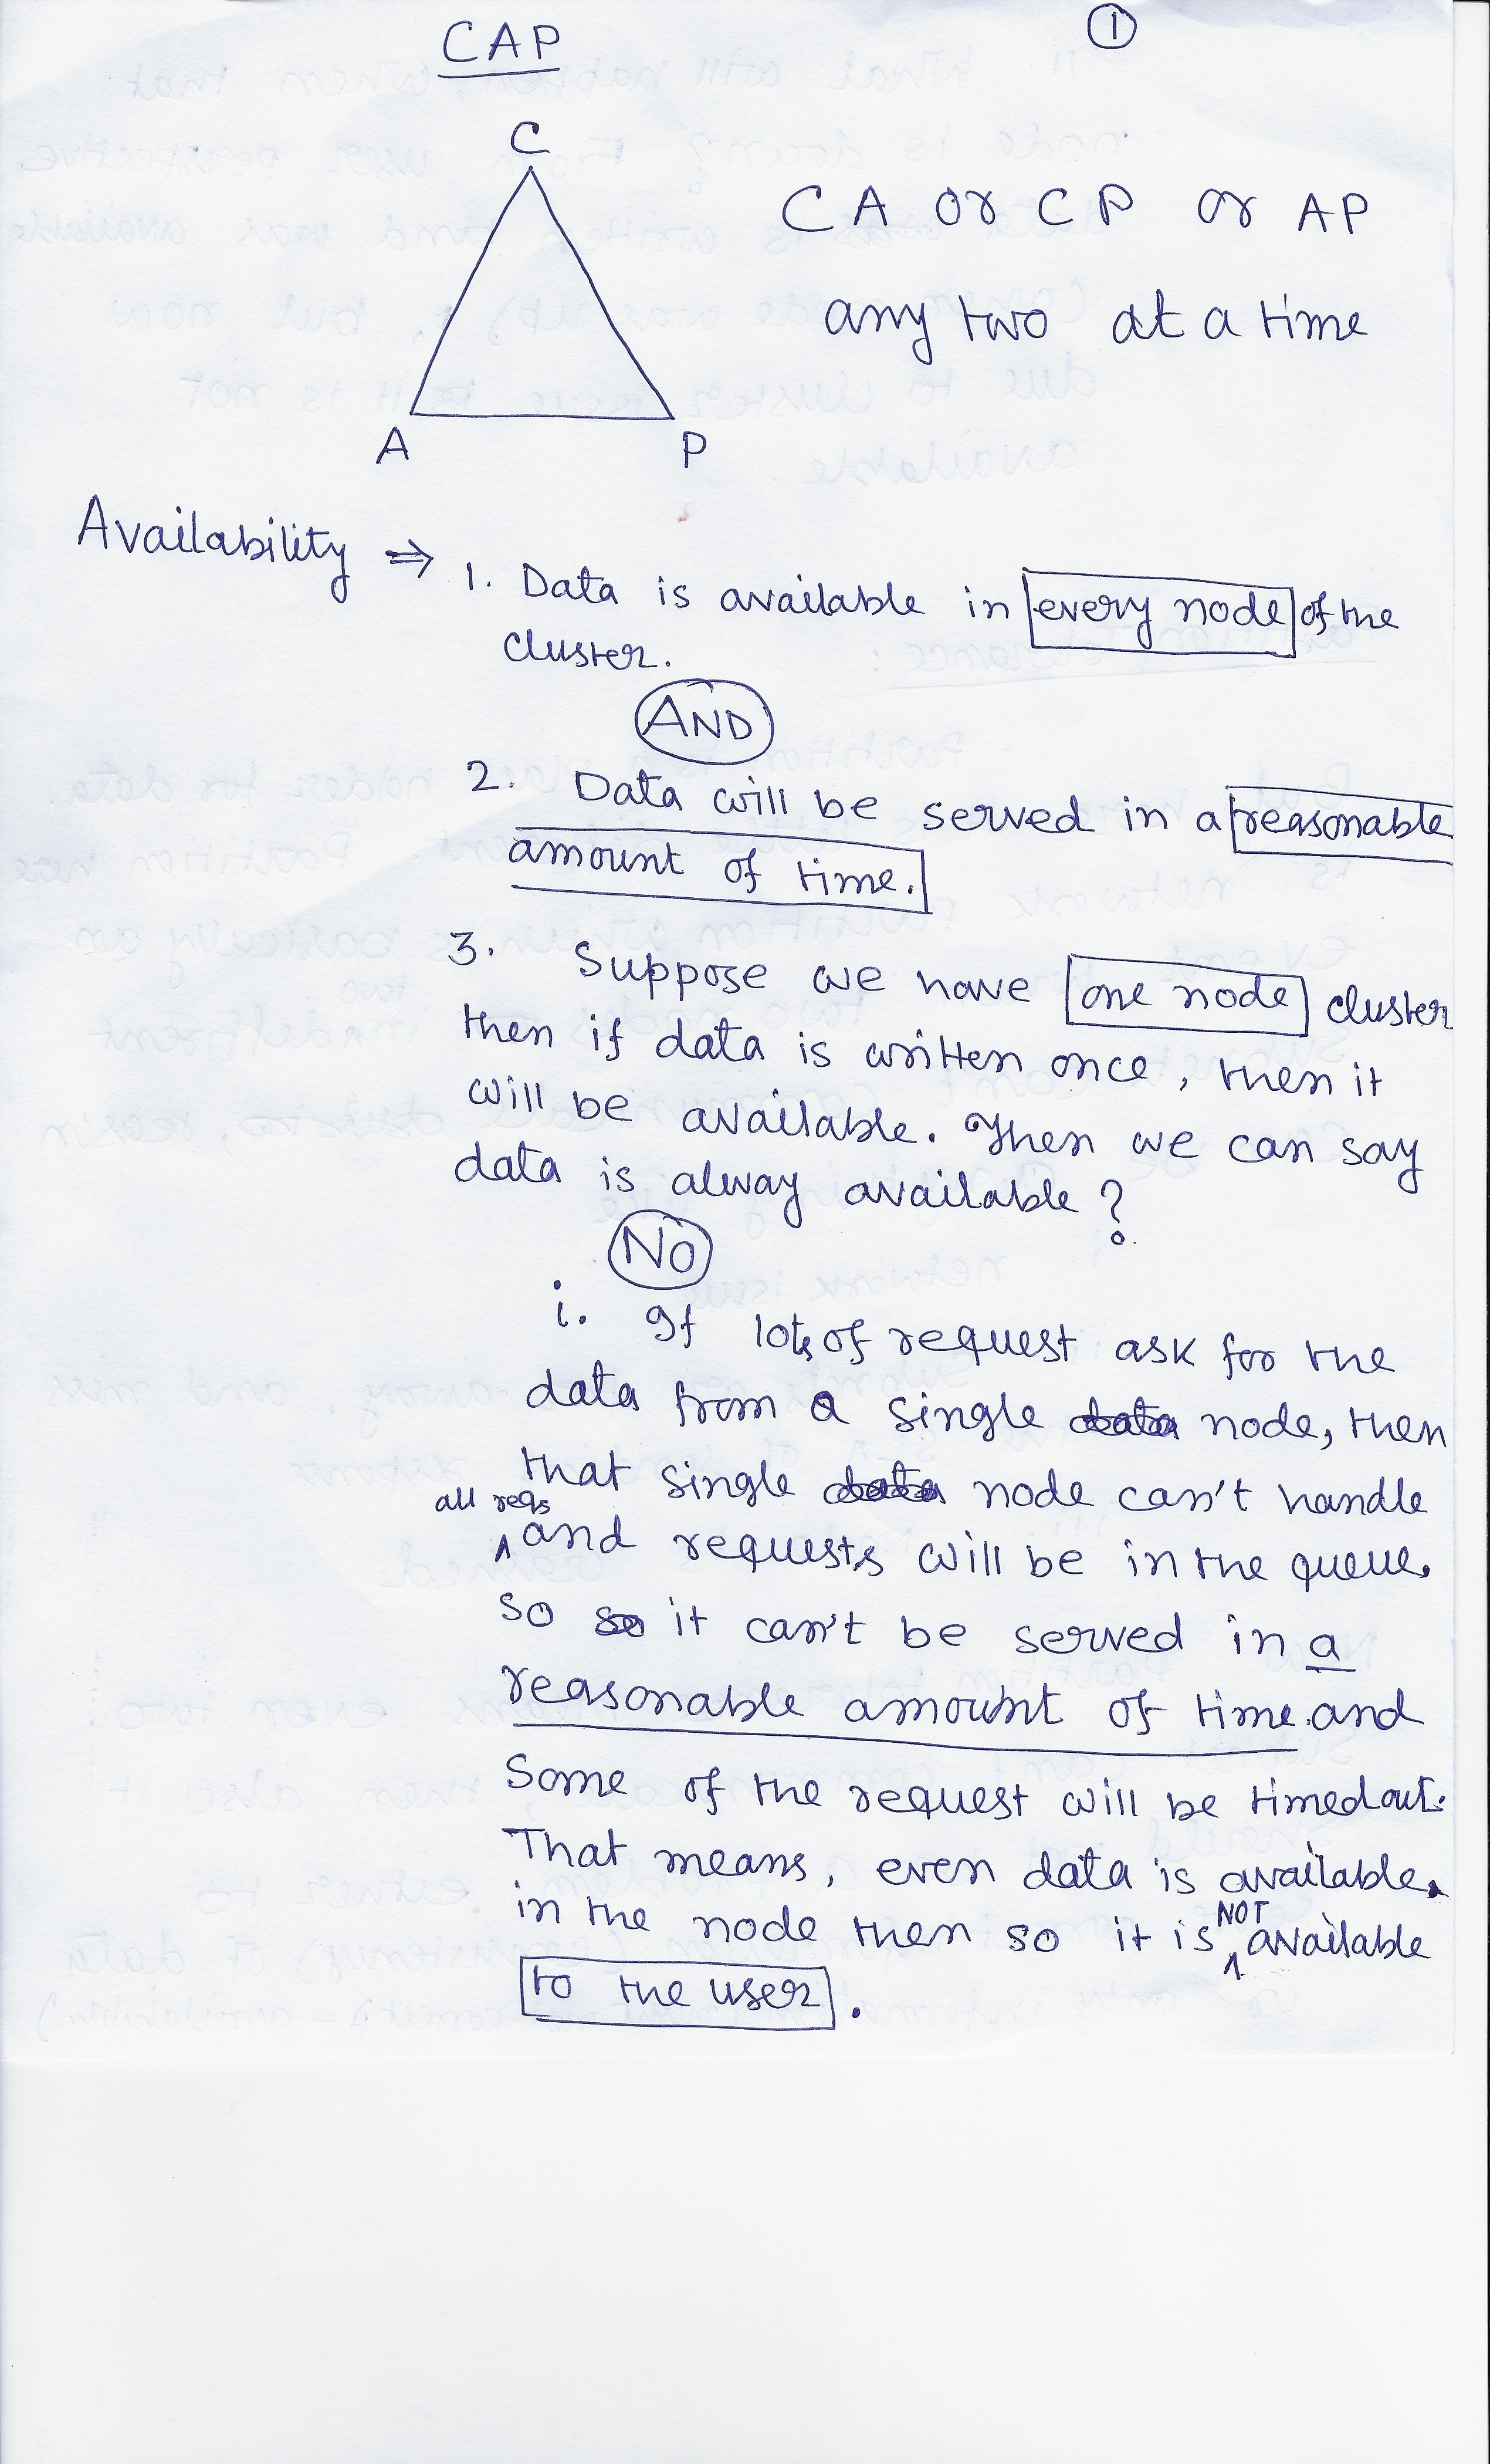 CAP
1
C
CA or CP or AP
any two at a time
A P
Availability ⇒ 1. Data is available in every node of the
cluster.
AND
2. Data will be served in a reasonable
amount of time.
3. Suppose we have one node cluster
then if data is written once, then it
will be available. Then we can say
data is alway available ?
NO
i. If lots of request ask for the
data from a single data node, then
that single data node can't handle
all reqs
and requests will be in the queue.
so so it can't be served in a
reasonable amount of time and
Some of the request will be timedout.
That means, even data is available
in the node then so it is NOT available
to the user.